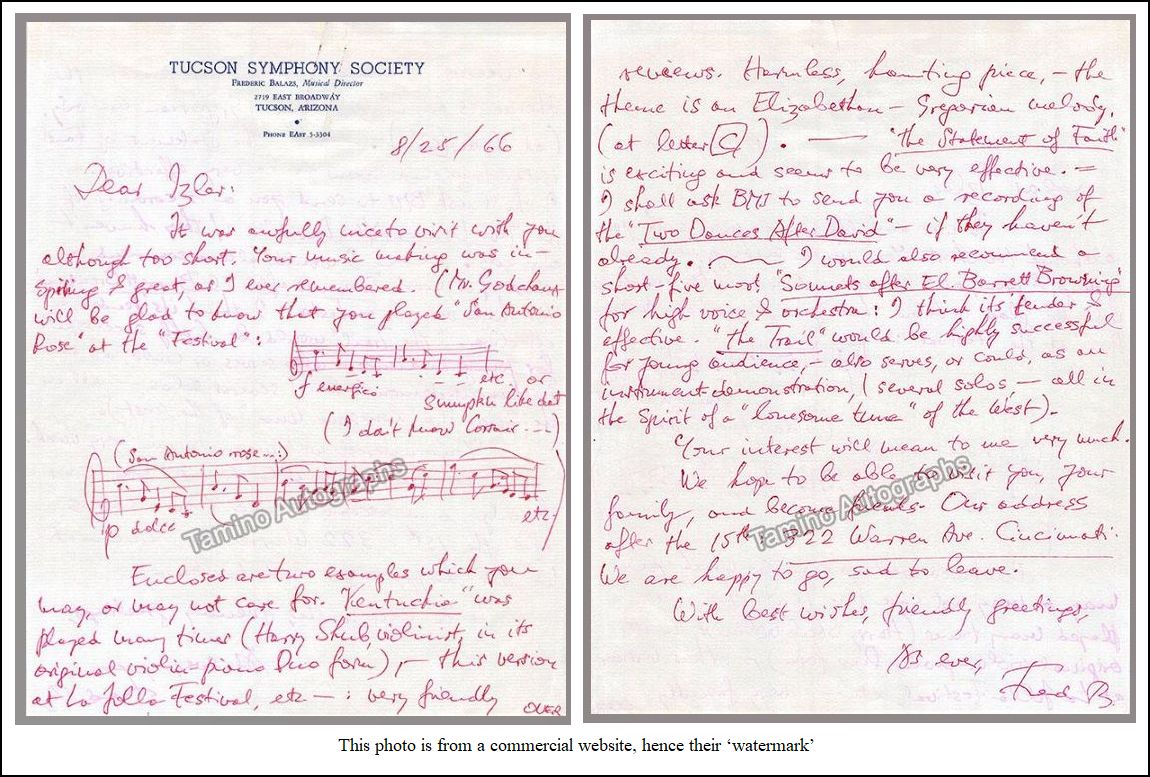 TUCSON SYMPHONY SOCIETY
FREDERIC BALAZS, Musical Director
2719 EAST BROADWAY
TUCSON, ARIZONA
PHONE EAST 5-3304
8/25/66
Dear Izler:
It was awfully nice to visit with you
although too short. Your music making was in-
spiring & great, as I ever remembered. (Mr. Godchaux
will be glad to know that you played "San Antonio
Rose" at the "Festival":
f energico etc. or
like that
(I don't know
(San Antonio rose...:)
p dolce
etc.
Enclosed are two examples which you
may, or may not care for. "Kentuckia" was
played many times (Harry Shub, violinist, in its
original violin-piano Duo form), - this version
at La Jolla Festival, etc - : very friendly
OVER
reviews. Harmless, haunting piece, - the
theme is an Elizabethan - Gregorian melody,
(at letter C). "the Statement of Faith"
is exciting and seems to be very effective. =
I shall ask BMI to send you a recording of
the "Two Dances After David" - if they haven't
already. I would also recommend a
short-five mov't "Sonnets after El. Barrett Browning"
for high voice & orchestra: I think its tender &
effective. "the Trail" would be highly successful
for young audience, - also serves, or could, as an
instrument demonstration, (several solos - all in
the spirit of a "lonesome tune" of the West).
Your interest will mean to me very much.
We hope to be able to visit you, your
family, and become friends. Our address
after the 15th: 322 Warren Ave. Cincinnati.
We are happy to go, sad to leave.
With best wishes, friendly greetings,
As ever,
Fred B.
Tamino Autographs
Tamino Autographs
This photo is from a commercial website, hence their 'watermark'